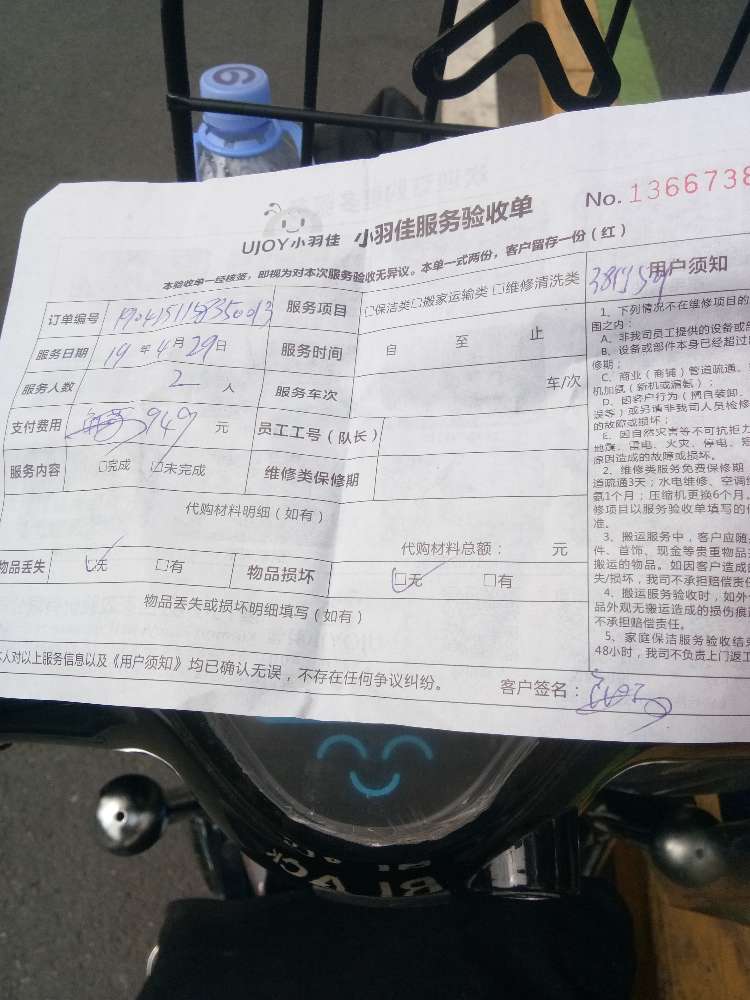 No. 1366738
UJOY小羽佳 小羽佳服务验收单
本验收单一经核签,即视为对本次服务验收无异议。本单一式两份,客户留存一份(红)
订单编号 服务项目 □保洁类□搬家运输类□维修清洗类
服务日期 19年4月29日 服务时间 自 至 止
服务人数 2人 服务车次 车/次
支付费用 949元 员工工号(队长)
服务内容 □完成 □未完成 维修类保修期
代购材料明细(如有)
代购材料总额: 元
物品丢失 □无 □有 物品损坏 □无 □有
物品丢失或损坏明细填写(如有)
本人对以上服务信息以及《用户须知》均已确认无误,不存在任何争议纠纷。
客户签名:
用户须知
1、下列情况不在维修项目的
围之内:
A、非我司员工提供的设备或
B、设备或部件本身已经超过
修期;
C、商业(商铺)管道疏通、
机加氨(新机或漏氨);
D、因客户行为(擅自装卸、
误等)或另请非我司人员检修
的故障或损坏;
E、因自然灾害等不可抗拒力
地震、雷电、火灾、停电、短
原因造成的故障或损坏。
2、维修类服务免费保修期
道疏通3天;水电维修、空调
氨1个月;压缩机更换6个月。
修项目以服务验收单填写的
准。
3、搬运服务中,客户应随
件、首饰、现金等贵重物品
搬运的物品。如因客户造成
失/损坏,我司不承担赔偿责任
4、搬运服务验收时,如外
品外观无搬运造成的损伤痕
不承担赔偿责任。
5、家庭保洁服务验收结
48小时,我司不负责上门返工
BLACK